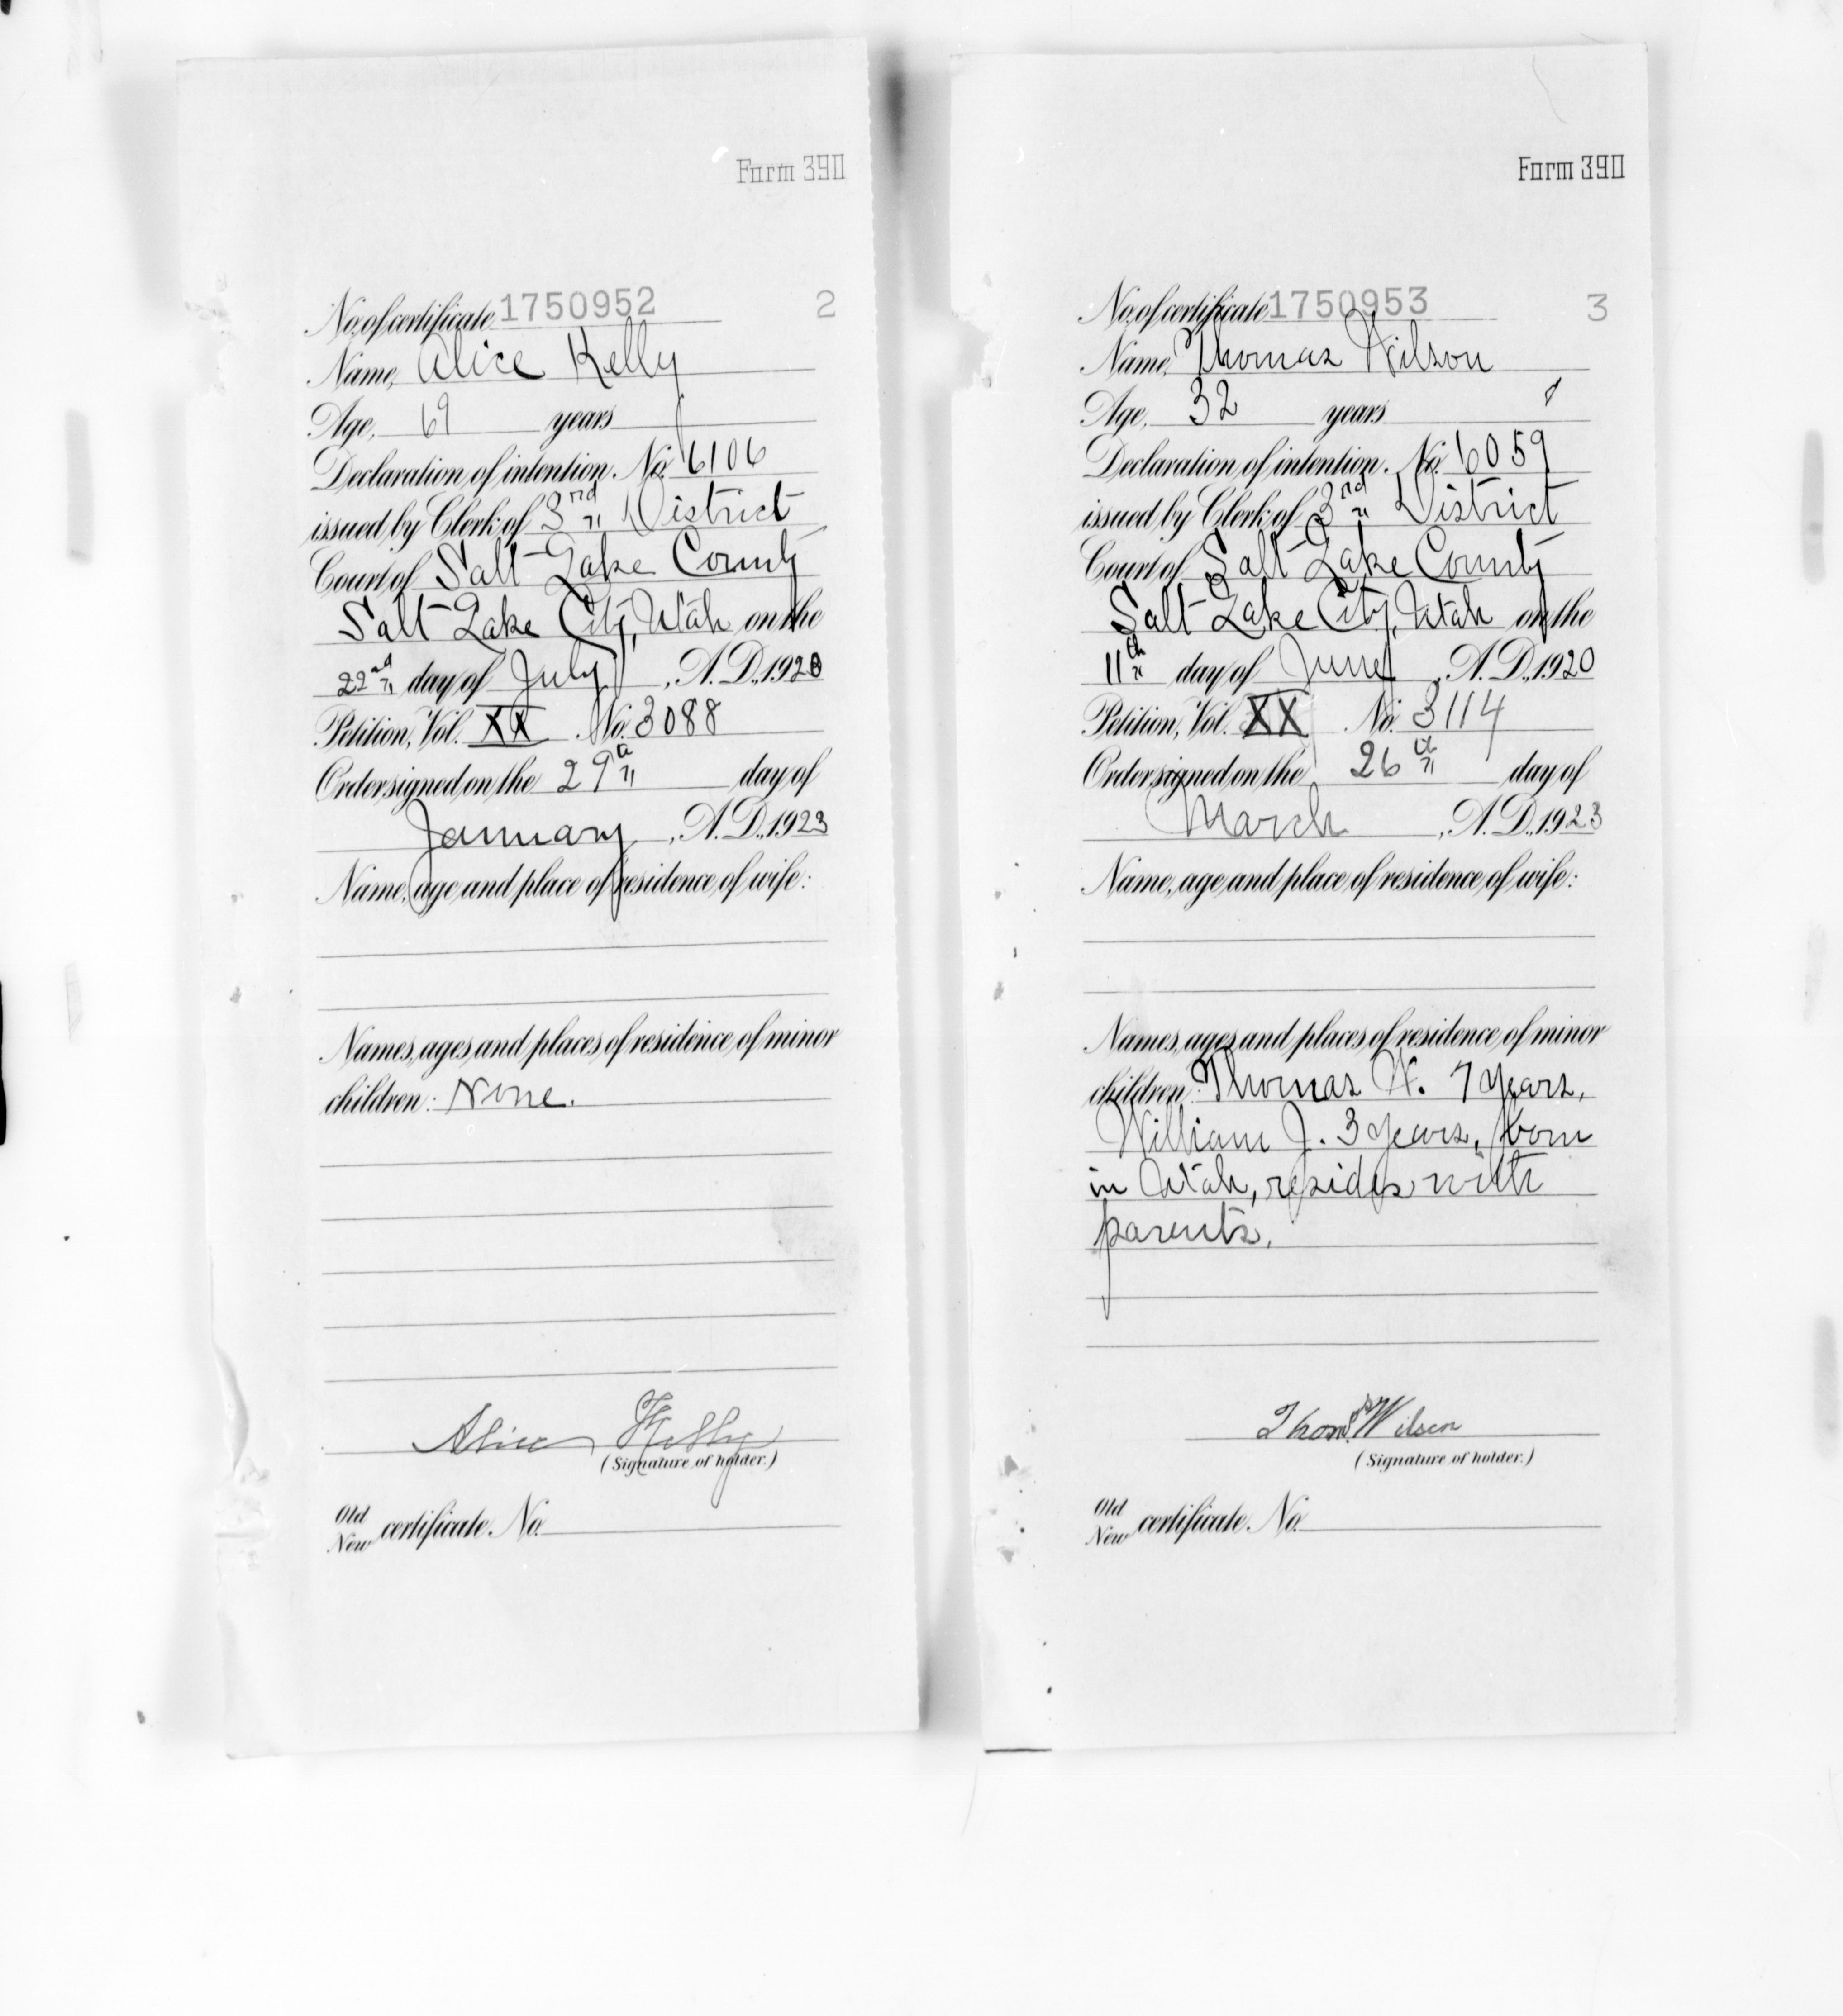 Form 390
No. of certificate 1750952 2
Name, Alice Kelly
Age, 69 years
Declaration of intention, No. 6106
issued by Clerk of 3rd District
Court of Salt Lake County
Salt Lake City, Utah on the
22nd day of July, A.D., 1920
Petition, Vol. XX No. 3088
Order signed on the 29th day of
January, A.D., 1923
Name, age and place of residence of wife:
Names, ages and places of residence of minor
children: None.
Alice Kelly
(Signature of holder.)
Old
New certificate. No.
Form 390
No. of certificate 1750953 3
Name, Thomas Wilson
Age, 32 years
Declaration of intention, No. 6059
issued by Clerk of 3rd District
Court of Salt Lake County
Salt Lake City, Utah on the
11th day of June, A.D., 1920
Petition, Vol. XX No. 3114
Order signed on the 26th day of
March, A.D., 1923
Name, age and place of residence of wife:
Names, ages and places of residence of minor
children: Thomas W. 7 years,
William J. 3 years, born
in Utah, resides with
parents.
Thomas Wilson
(Signature of holder.)
Old
New certificate. No.